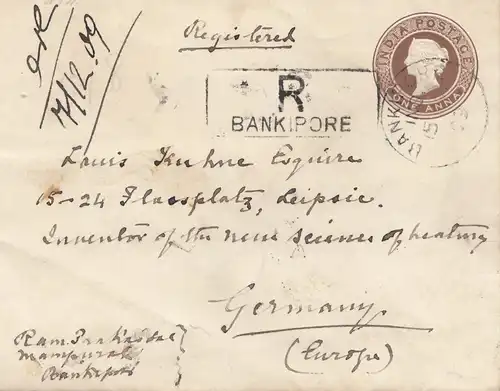 Registered
INDIA POSTAGE
ONE ANNA
R
BANKIPORE
BANK
15
Louis Kuhne Esquire
15-24 Flossplatz, Leipsic.
Inventor of the new science of healing
Germany
(Europe)
Ram
Bankipore